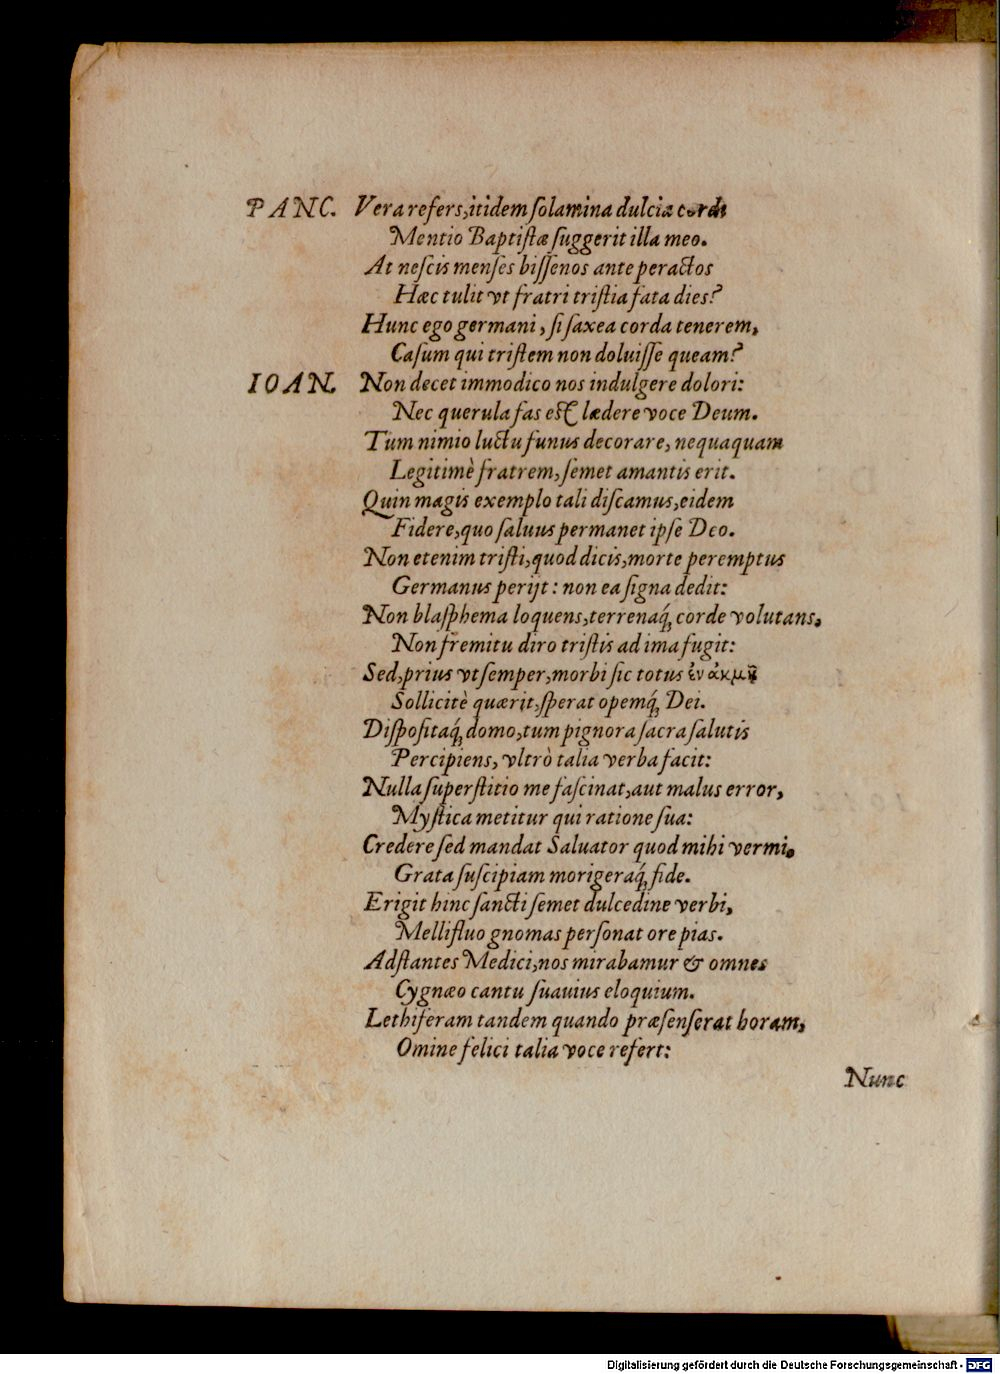 PANC. Vera refers, itidem ſolamina dulcia cordi
Mentio Baptiſtæ ſuggerit illa meo.
At neſcis menſes biſſenos ante peractos
Hæc tulit vt fratri triſtia fata dies?
Hunc ego germani, ſi ſaxea corda tenerem,
Caſum qui triſtem non doluiſſe queam?
IOAN. Non decet immodico nos indulgere dolori:
Nec querula fas eſt lædere voce Deum.
Tum nimio luctu funus decorare, nequaquam
Legitimè fratrem, ſemet amantis erit.
Quin magis exemplo tali diſcamus, eidem
Fidere, quo ſaluus permanet ipſe Deo.
Non etenim triſti, quod dicis, morte peremptus
Germanus perijt: non ea ſigna dedit:
Non blaſphema loquens, terrenaq́; corde volutans,
Non fremitu diro triſtis ad ima fugit:
Sed, prius vt ſemper, morbi ſic totus ἐν ἀκμῇ
Sollicitè quærit, ſperat opemq́; Dei.
Diſpoſitaq́; domo, tum pignora ſacra ſalutis
Percipiens, vltrò talia verba facit:
Nulla ſuperſtitio me faſcinat, aut malus error,
Myſtica metitur qui ratione ſua:
Credere ſed mandat Saluator quod mihi vermi,
Grata ſuſcipiam morigeraq́; fide.
Erigit hinc ſancti ſemet dulcedine verbi,
Mellifluo gnomas perſonat ore pias.
Adſtantes Medici, nos mirabamur & omnes
Cygnæo cantu ſuauius eloquium.
Lethiferam tandem quando præſenſerat horam,
Omine felici talia voce refert:
Nunc
Digitalisierung gefördert durch die Deutsche Forschungsgemeinschaft - DFG